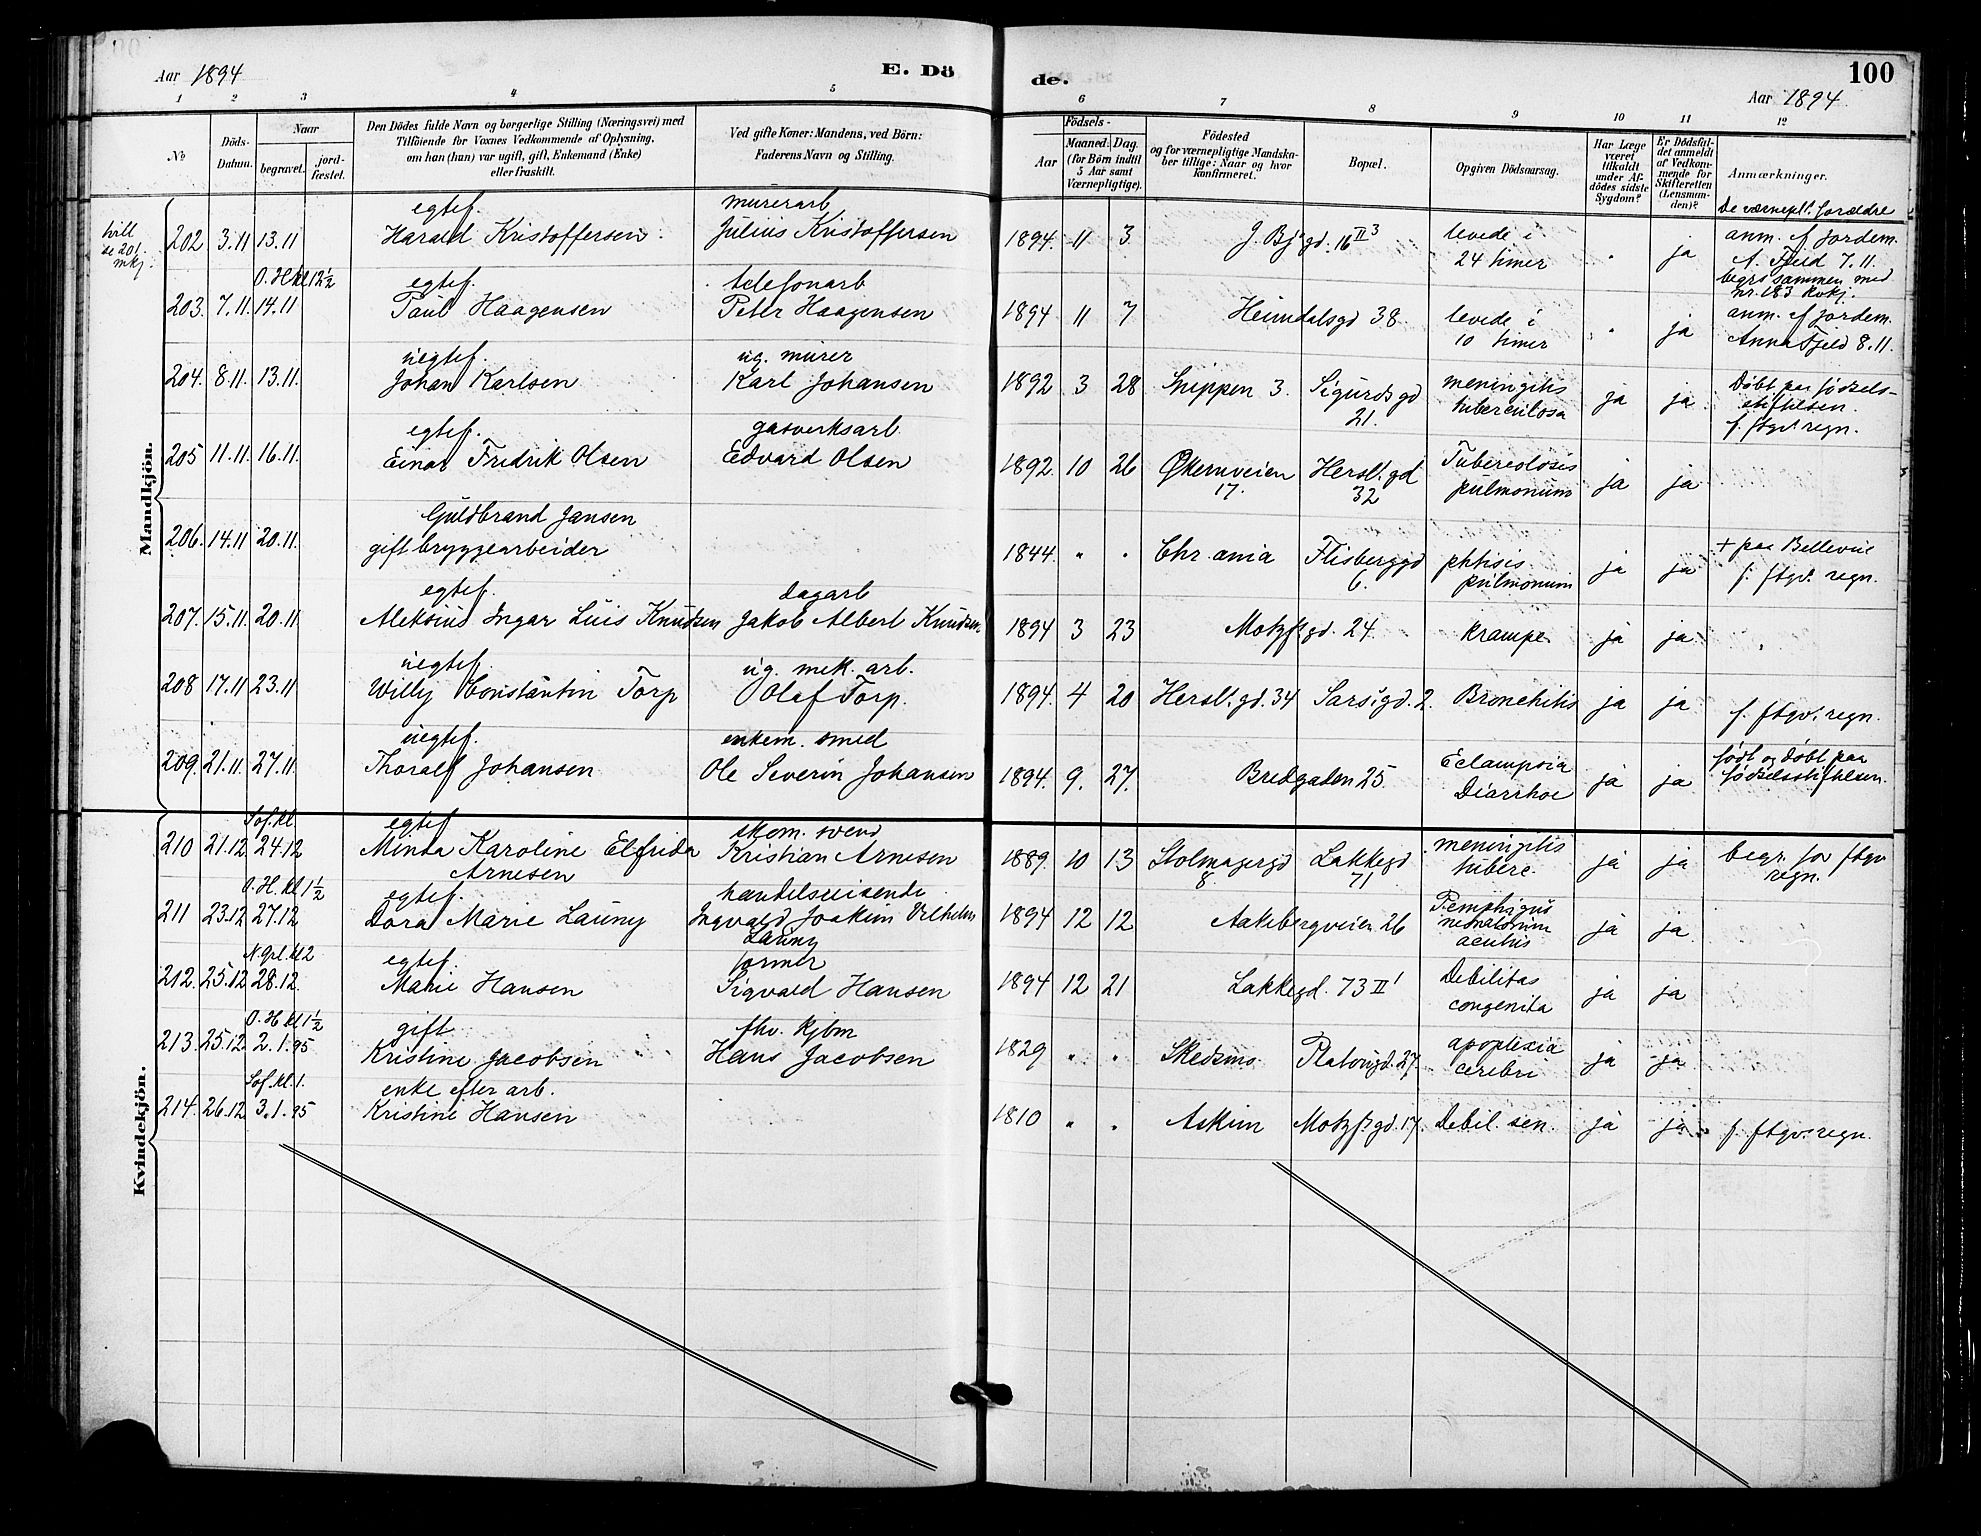 Aar 1894
E. Dö
de.
Aar 1894
100
1 2 3 4 5 6 7 8 9 10 11 12
No
Döds-Datum.
Naar
begravet.
jord-fæstet.
Den Dödes fulde Navn og borgerlige Stilling (Næringsvei) med
Tilföiende for Voxnes Vedkommende af Oplysning.
om han (hun) var ugift, gift, Enkemand (Enke)
eller fraskilt.
Ved gifte Koner: Mandens, ved Börn:
Faderens Navn og Stilling.
Födsels-
Aar
Maaned. Dag.
(for Börn indtil
5 Aar samt
Værnepligtige).
Födested
og for værnepligtige Mandska-
ber tillige: Naar og hvor
konfirmeret.
Bopæl.
Opgiven Dödsaarsag.
Har Læge
været
tilkaldt
under Af-
dödes sidste
Sygdom?
Er Dödsfal-
det anmeldt
af Vedkom-
mende for
Skifteretten
(Lensman-
den)?
Anmærkninger.
Mandkjön.
202 3.11 13.11 egtef. Harald Kristoffersen murerarb Julius Kristoffersen 1894. 11 3 J. Bj gd. 16 II 3 levede i 24 timer " ja anm. af jordem. A. Fjeld 7.11.
203. 7.11. O. H kl 12½ 14.11 egtef. Paul Haagensen telefonarb Peter Haagensen 1894 11 7 Heimdalsgd 38 levede i 10 timer " ja begr. sammen med nr. 183 Kvkj. anm. af jordem. Anna Fjeld 8.11.
204. 8.11. 13.11. uegtef. Johan Karlsen ug. murer Karl Johansen 1892 3 28 Snippen 3. Sigurdsgd 21. meningitis tuberculosa ja ja Døbt paa fødsels-stiftelsen. f. ftgv regn.
205 11.11. 16.11. egtef. Einar Fredrik Olsen gasverksarb. Edvard Olsen 1892. 10 26 Økernveien 17. Hersl. gd 32 Tuberculosis pulmonum ja ja
206. 14.11 20.11. Guldbrand Jansen gift bryggearbeider 1844. " " Chr.ania Flisberggd 6. phtisis pulmonum ja ja + paa Bellevue f. ftgv. regn.
207. 15.11. 20.11 egtef. Aleksius Ingar Luis Knudsen dagarb Jakob Albert Knudsen. 1894 3 23 Motzf. gd. 24. Krampe ja ja "
208 17.11 23.11 uegtef. Willy Constantin Torp ug. mek. arb. Olaf Torp. 1894. 4 20 Hersl. gd. 34 Sars' gd. 2. Bronchitis ja ja f. ftgv. regn.
209. 21.11. 27.11. uegtef. Thoralf Johansen enkem. smed Ole Severin Johansen 1894. 9. 27. Bredgaden 25. Eclampsia Diarrhoe ja ja født og døbt paa fødselsstiftelsen
Kvindekjön.
210 21.12 Sof. kl 24.12 egtef Minda Karoline Elfrida Arnesen skom. svend Kristian Arnesen 1889. 10 13 Stolmagergd 8 Lakkegd 71 meningitis tuberc. ja ja begr. for ftgv regn.
211 23.12 O. H. kl 1½ 27.12 egtef. Dora Marie Launy handelsreisende Ingvald Joakim Vilhelm Launy 1894 12 12 Aakebergveien 26 Pemphigus neonatorum acutus ja ja
212. 25.12 N. grl. kl 2 28.12. egtef. Marie Hansen former Sigvald Hansen 1894 12 21 Lakkegd. 73 II' Debilitas congenita ja ja
213. 25.12. O. H kl 1½ 2.1.95 gift Kristine Jacobsen fhv. kjbm Hans Jacobsen 1829 " " Skedsmo Platousgd. 27 apoplexia cerebri ja ja
214. 26.12 Sof. kl 1. 3.1.95 enke efter arb. Kristine Hansen 1810 " " Askim Motzf. gd. 17. Debil. sen. ja ja f. ftgv. regn.